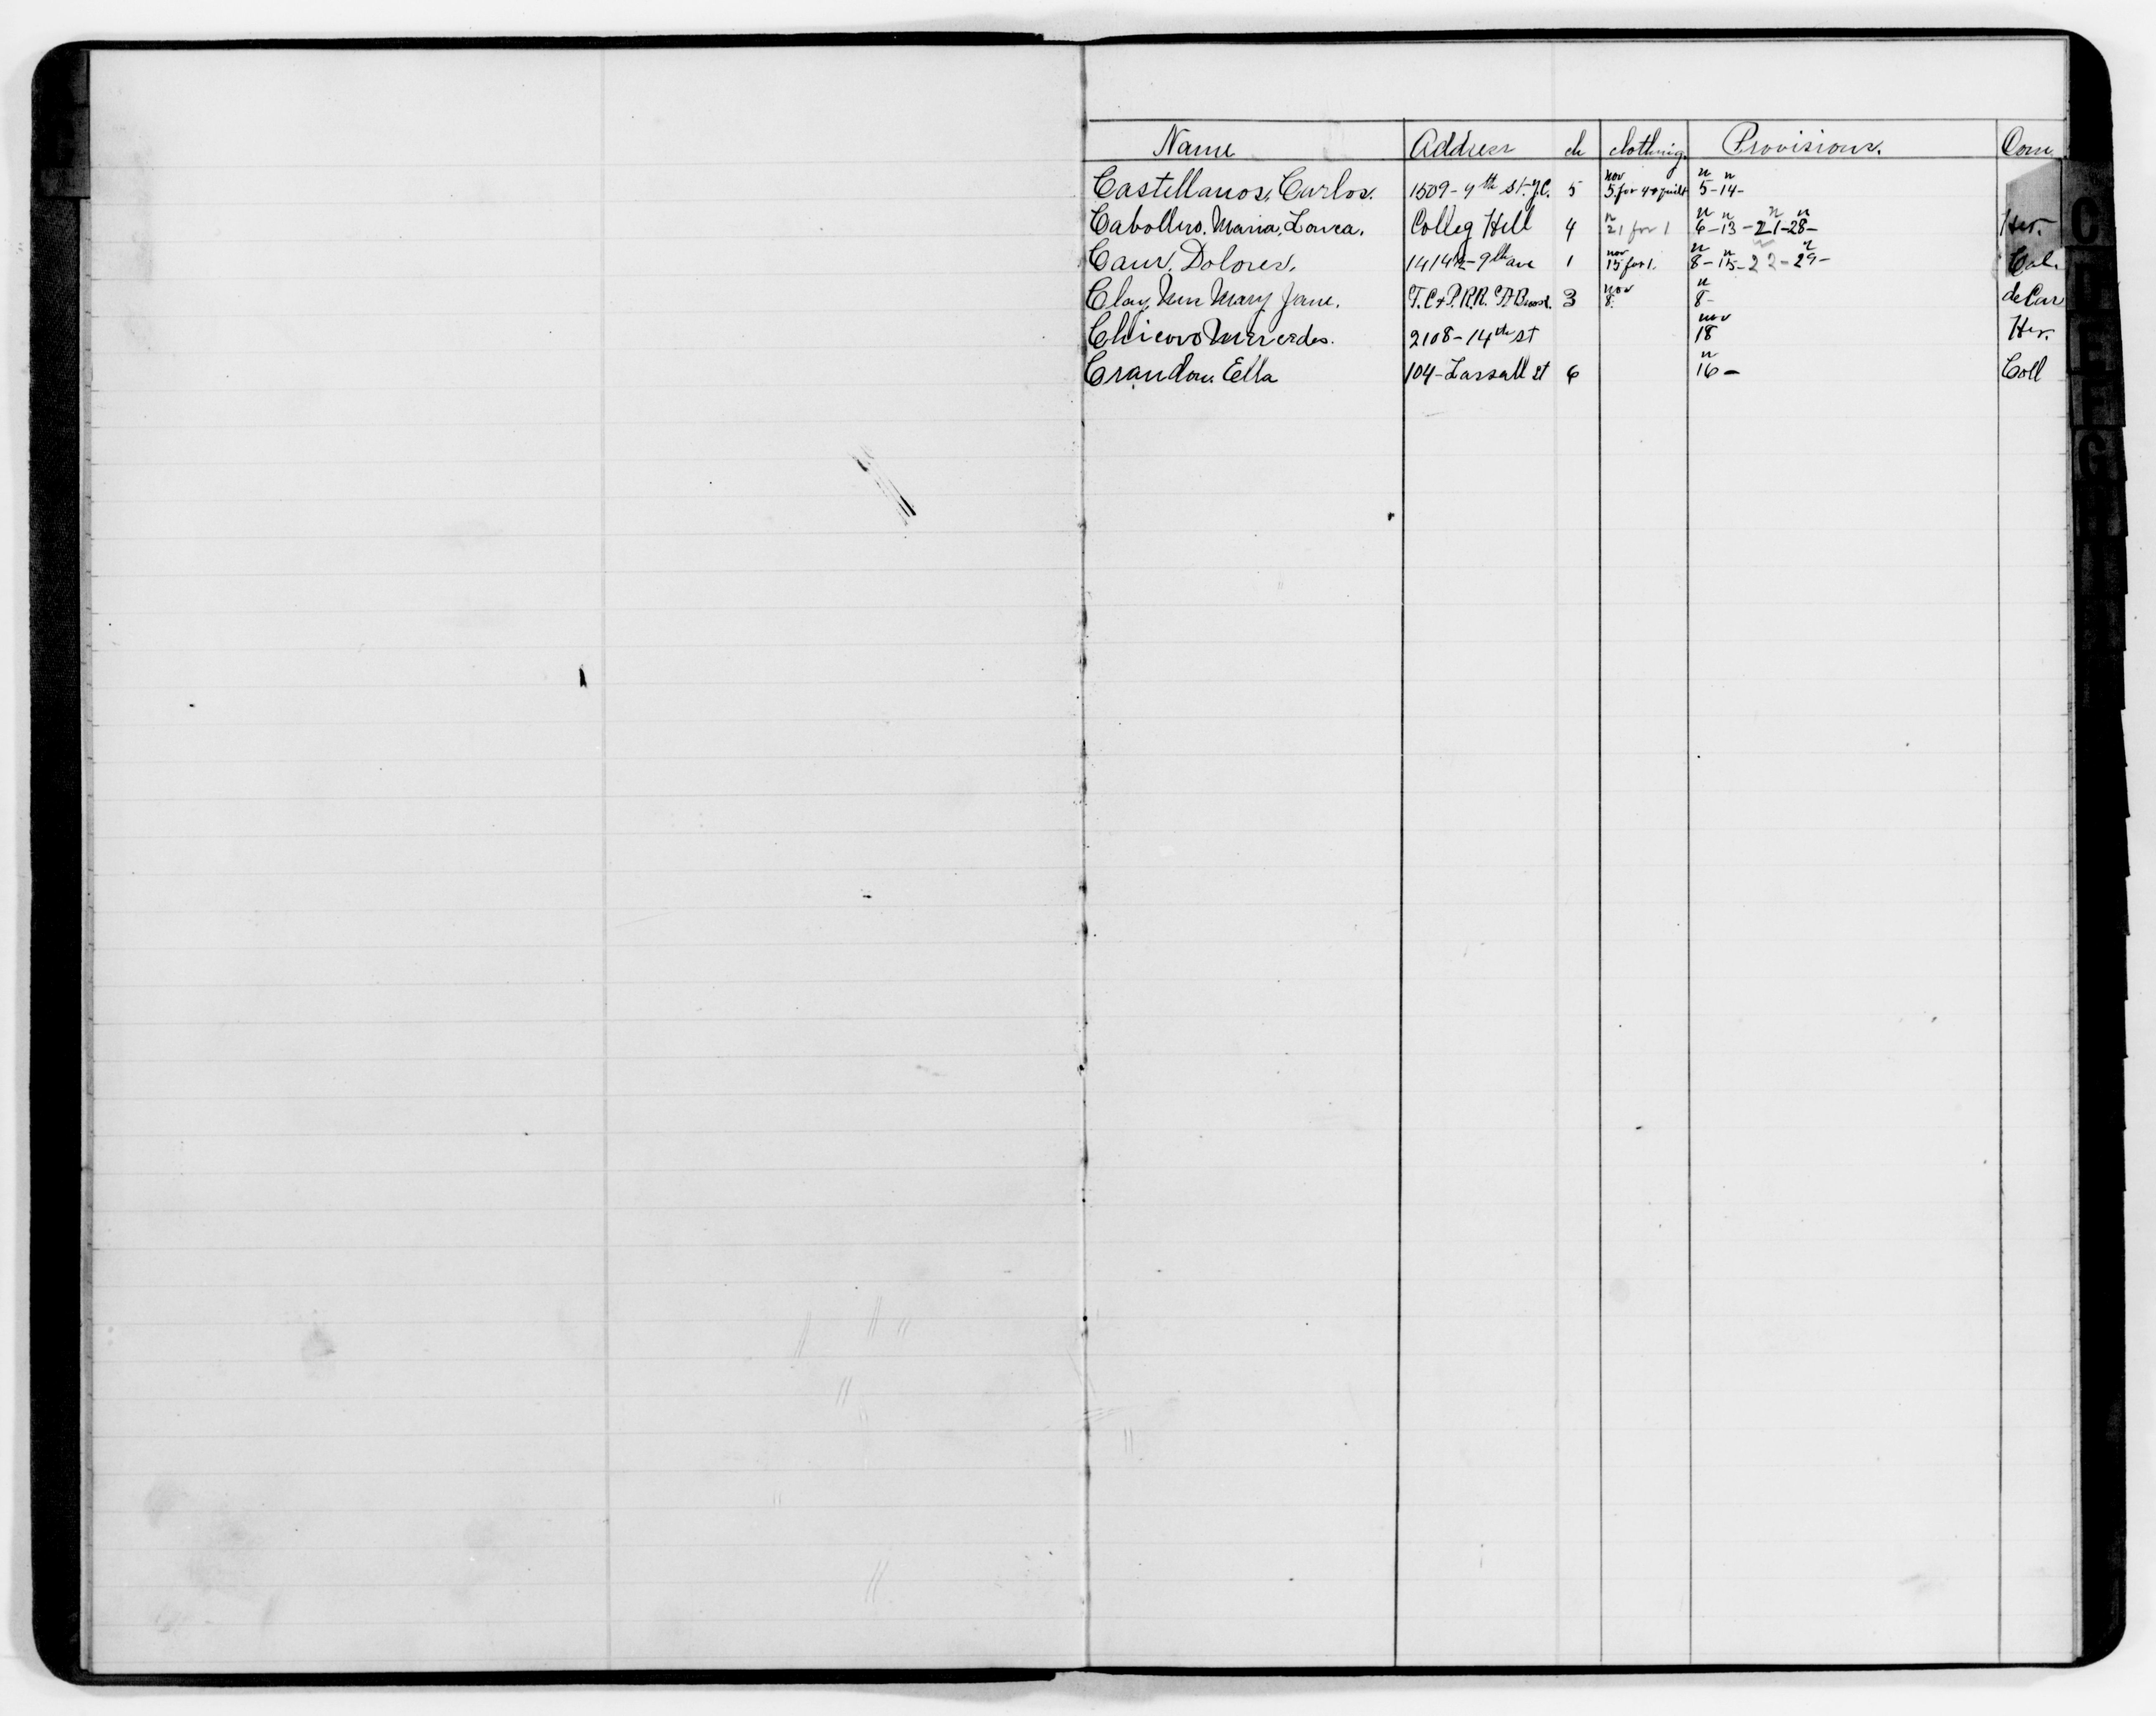 Name Address ch clothing. Provisions. Com.
Castellanos, Carlos. 1509-4th St. Y.C. 5 nov 5 for 4+quilt n n 5-14-
Caballero. Maria, Louca. Colleg Hill 4 n 21 for 1 n n n n 6-13-21-28- Her.
Dolores. 1414½-9th ave 1 nov 15 for 1. n n n n 8-15-22-29- Cal.
Clay, Mary Jane. T.C.+P.R.R. 3 nov 8. n 8- de Car
Mercedes. 2108-14th st nov 18 Her.
Crandon Ella 104-Lassall st 6 n 16- Coll
C